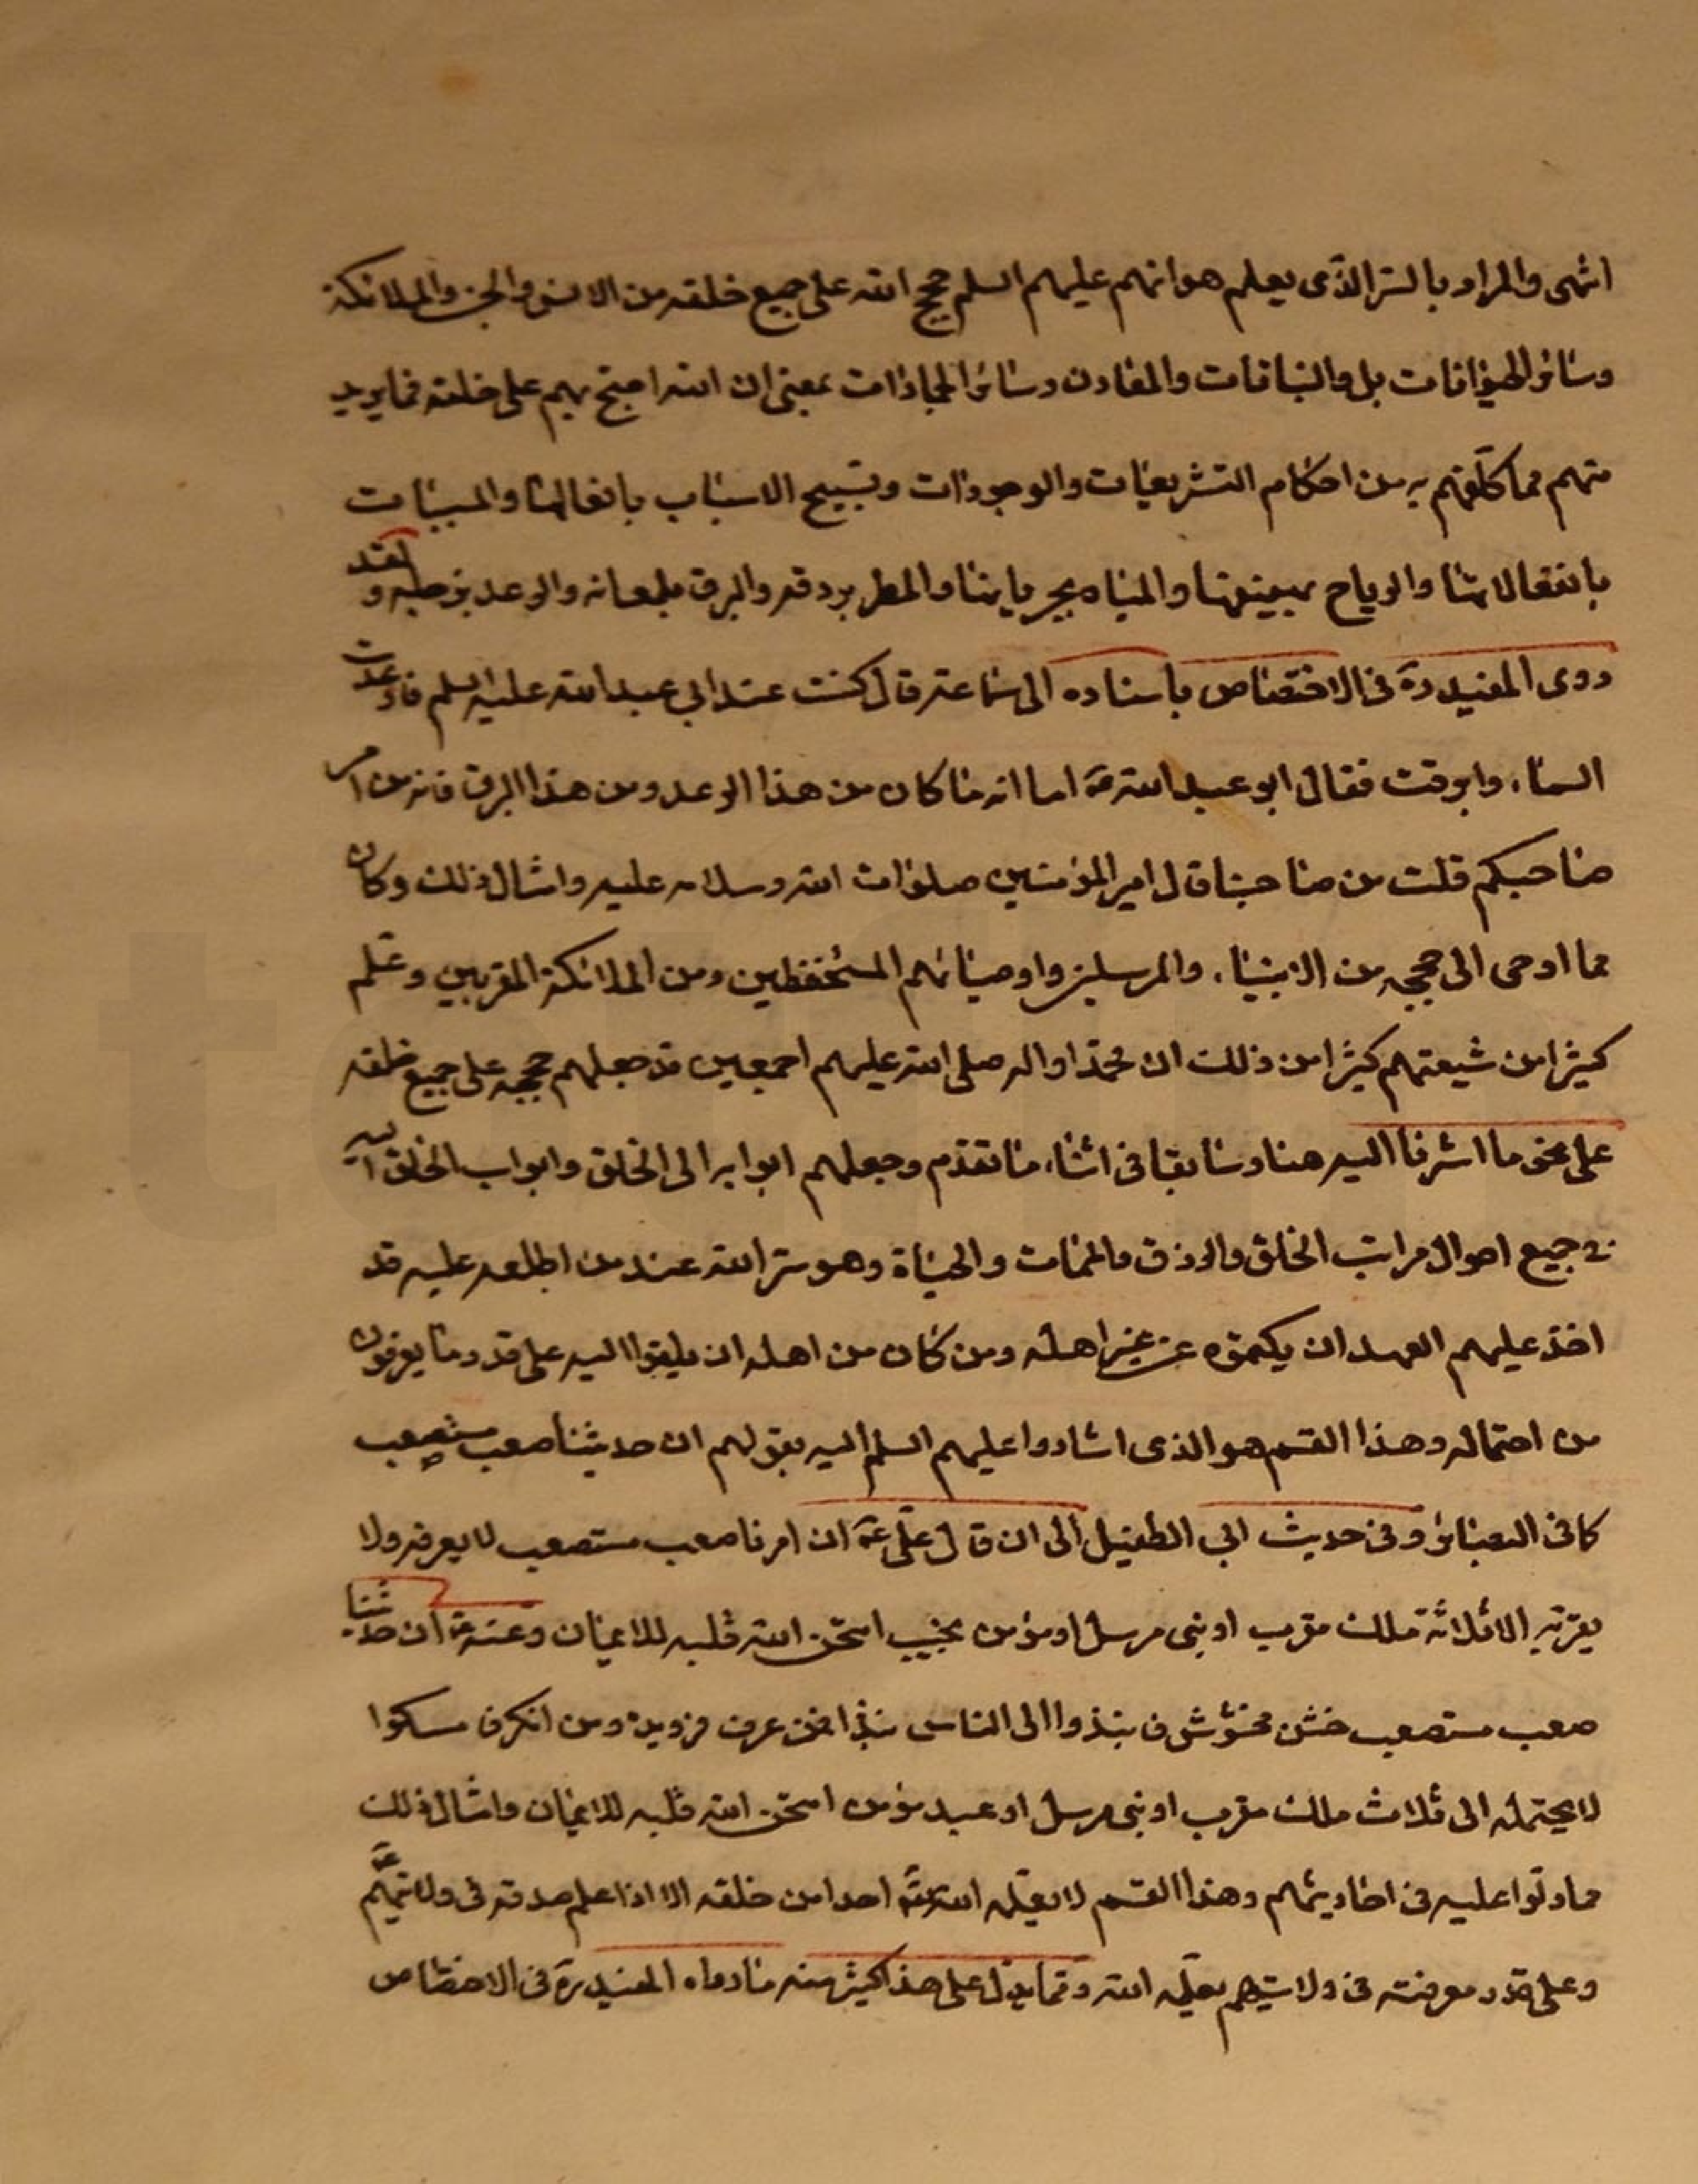 انتهى والمراد بالسر الذى يعلم هو انهم عليهم السلم حجج الله على جميع خلقه من الانس والجن والملائكة
وسائر الحيوانات بل والنباتات والمعادن وسائر الجمادات بمعنى ان الله احتج بهم على خلقه فيما يريد
منهم مما كلفهم به من احكام التشريعيات والوجودات وتسبيح الاسباب بافعالها والمسببات
بانفعالاتها والرياح بهبوبها والمياه بجريانها والمطر بودقه والبرق بلمعانه والرعد بزجله ولقد
روى المفيد ره فى الاختصاص باسناده الى سماعة قال كنت عند ابي عبد الله عليه السلم فارعدت
السماء وابرقت فقال ابو عبد الله ع اما انه ما كان من هذا الرعد ومن هذا البرق فانه من امر
صاحبكم قلت من صاحبنا قال امير المؤمنين صلوات الله وسلامه عليه وامثال ذلك وكان
مما اوحى الى حججه من الانبياء والمرسلين واوصيائهم المستحفظين ومن الملائكة المقربين وعلم
كثيرا من شيعتهم كثيرا من ذلك ان محمدا واله صلى الله عليهم اجمعين قد جعلهم حججه على جميع خلقه
على نحو ما اشرنا اليه هنا وسابقا فى اثناء ما تقدم وجعلهم ابوابه الى الخلق وابواب الخلق اليه
فى جميع احوال مراتب الخلق والرزق والممات والحياة وهو سر الله عند من اطلعه عليه قد
اخذ عليهم العهد ان يكتموه عن غير اهله ومن كان من اهله ان يلقوا اليه على قدر ما يعرفون
من احتماله وهذا القسم هو الذى اشاروا عليهم السلم اليه بقولهم ان حديثنا صعب مستصعب
كما فى البصائر وفى حديث ابي الطفيل الى ان قال على ع ان امرنا صعب مستصعب لا يعرفه ولا
يقر به الا ثلاثة ملك مقرب او نبى مرسل او مؤمن نجيب امتحن الله قلبه للايمان وعنه ع ان حديثنا
صعب مستصعب خشن مخشوش فانبذوا الى الناس نبذا فمن عرف فزيدوه ومن انكر فامسكوا
لا يحتمله الى ثلاث ملك مقرب او نبى مرسل او عبد مؤمن امتحن الله قلبه للايمان وامثال ذلك
مما دلوا عليه فى احاديثهم وهذا القسم لا يعلمه الله احدا من خلقه الا اذا علم صدقه فى ولايتهم ع
وعلى قدر معرفته فى ولايتهم يعلمه الله ومما يدل على هذا كثير منه ما رواه المفيد ره فى الاختصاص